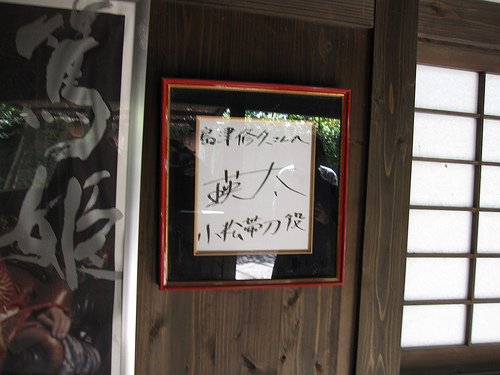 篤姫
島津修久さんへ
瑛太
小松帯刀役